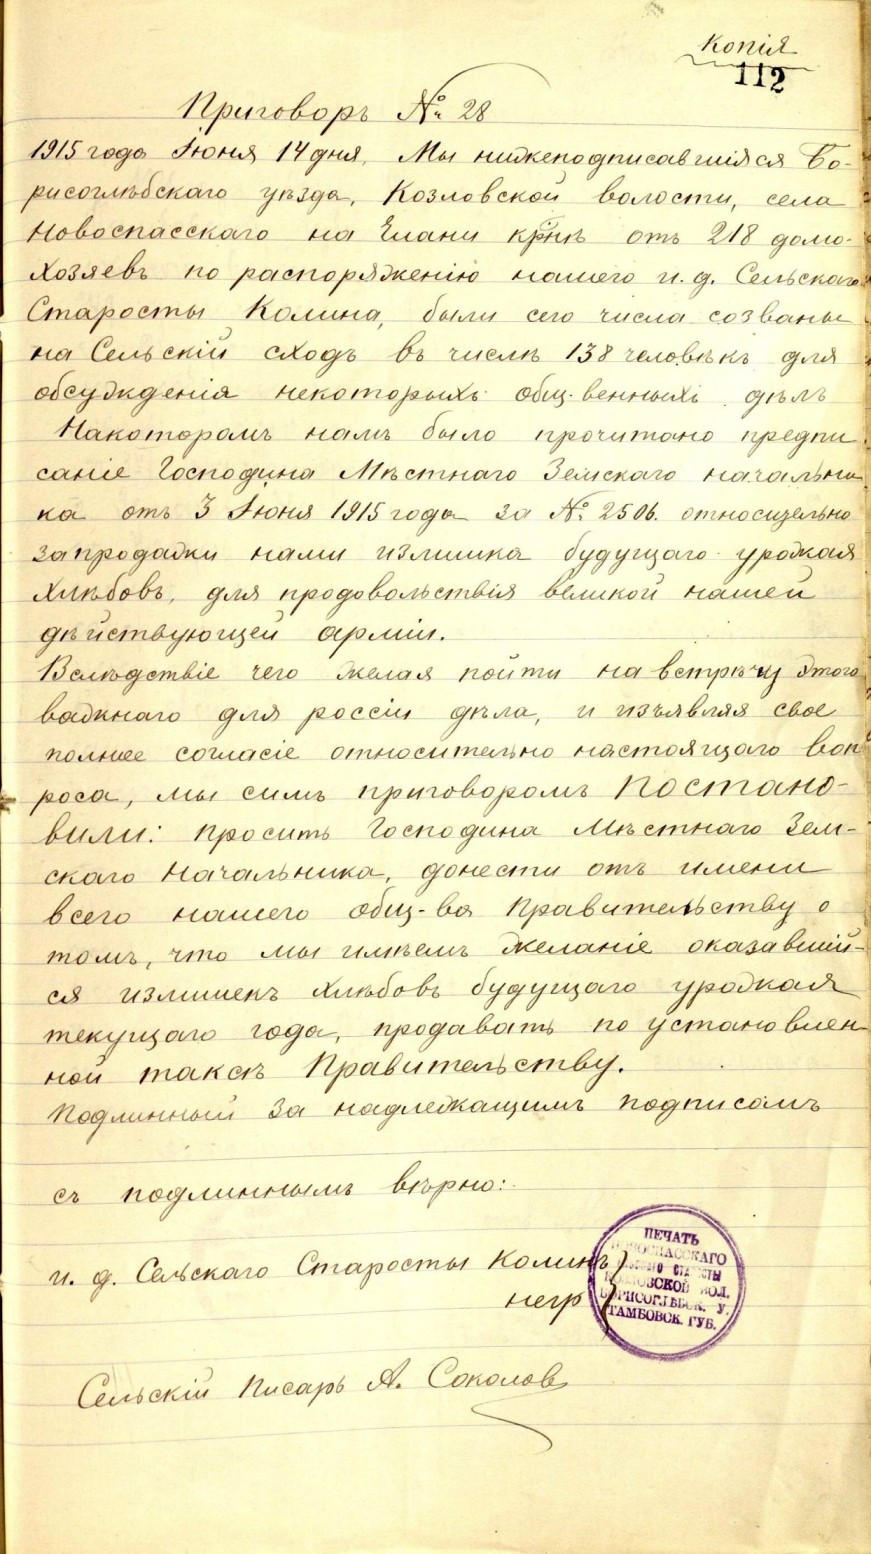 Копія
112
Приговоръ № 28
1915 года Іюня 14 дня, Мы нижеподписавшіяся Бо-
рисоглѣбскаго уѣзда, Козловской волости, села
Новоспасскаго на Елани крнъ отъ 218 домо-
хозяевъ по распоряженію нашего и. д. Сельскаго
Старосты Колина, были сего числа созваны
на Сельскій сходъ въ числѣ 138 человѣкъ для
обсужденія некоторыхъ общ-венныхъ дѣлъ
Накоторомъ намъ было прочитано предпи
саніе Господина Мѣстнаго Земскаго начальни
ка отъ 3 Іюня 1915 года за № 2506. относительно
запродажи нами излишка будущаго урожая
хлѣбовъ, для продовольствія великой нашей
дѣйствующей арміи.
Вслѣдствіе чего желая пойти на встрѣчу этого
важнаго для россіи дѣла, и изъявляя свое
полное согласіе относительно настоящаго воп
роса, мы симъ приговоромъ Постано-
вили: просить Господина Мѣстнаго Зем-
скаго Начальника, донести отъ имени
всего нашего общ-ва Правительству о
томъ, что мы имѣемъ желаніе оказавшій-
ся излишекъ хлѣбовъ будущаго урожая
текущаго года, продавать по установлен
ной таксѣ Правительству.
Подлинный за надлежащимъ подписомъ
съ подлиннымъ вѣрно:
и. д. Сельскаго Старосты Колинъ
негр
ПЕЧАТЬ
НОВОСПАССКАГО
СЕЛЬСКАГО СТАРОСТЫ
КОЗЛОВСКОЙ ВОЛ.
БОРИСОГЛѢБСК. У.
ТАМБОВСК. ГУБ.
Сельскій Писарь А. Соколов